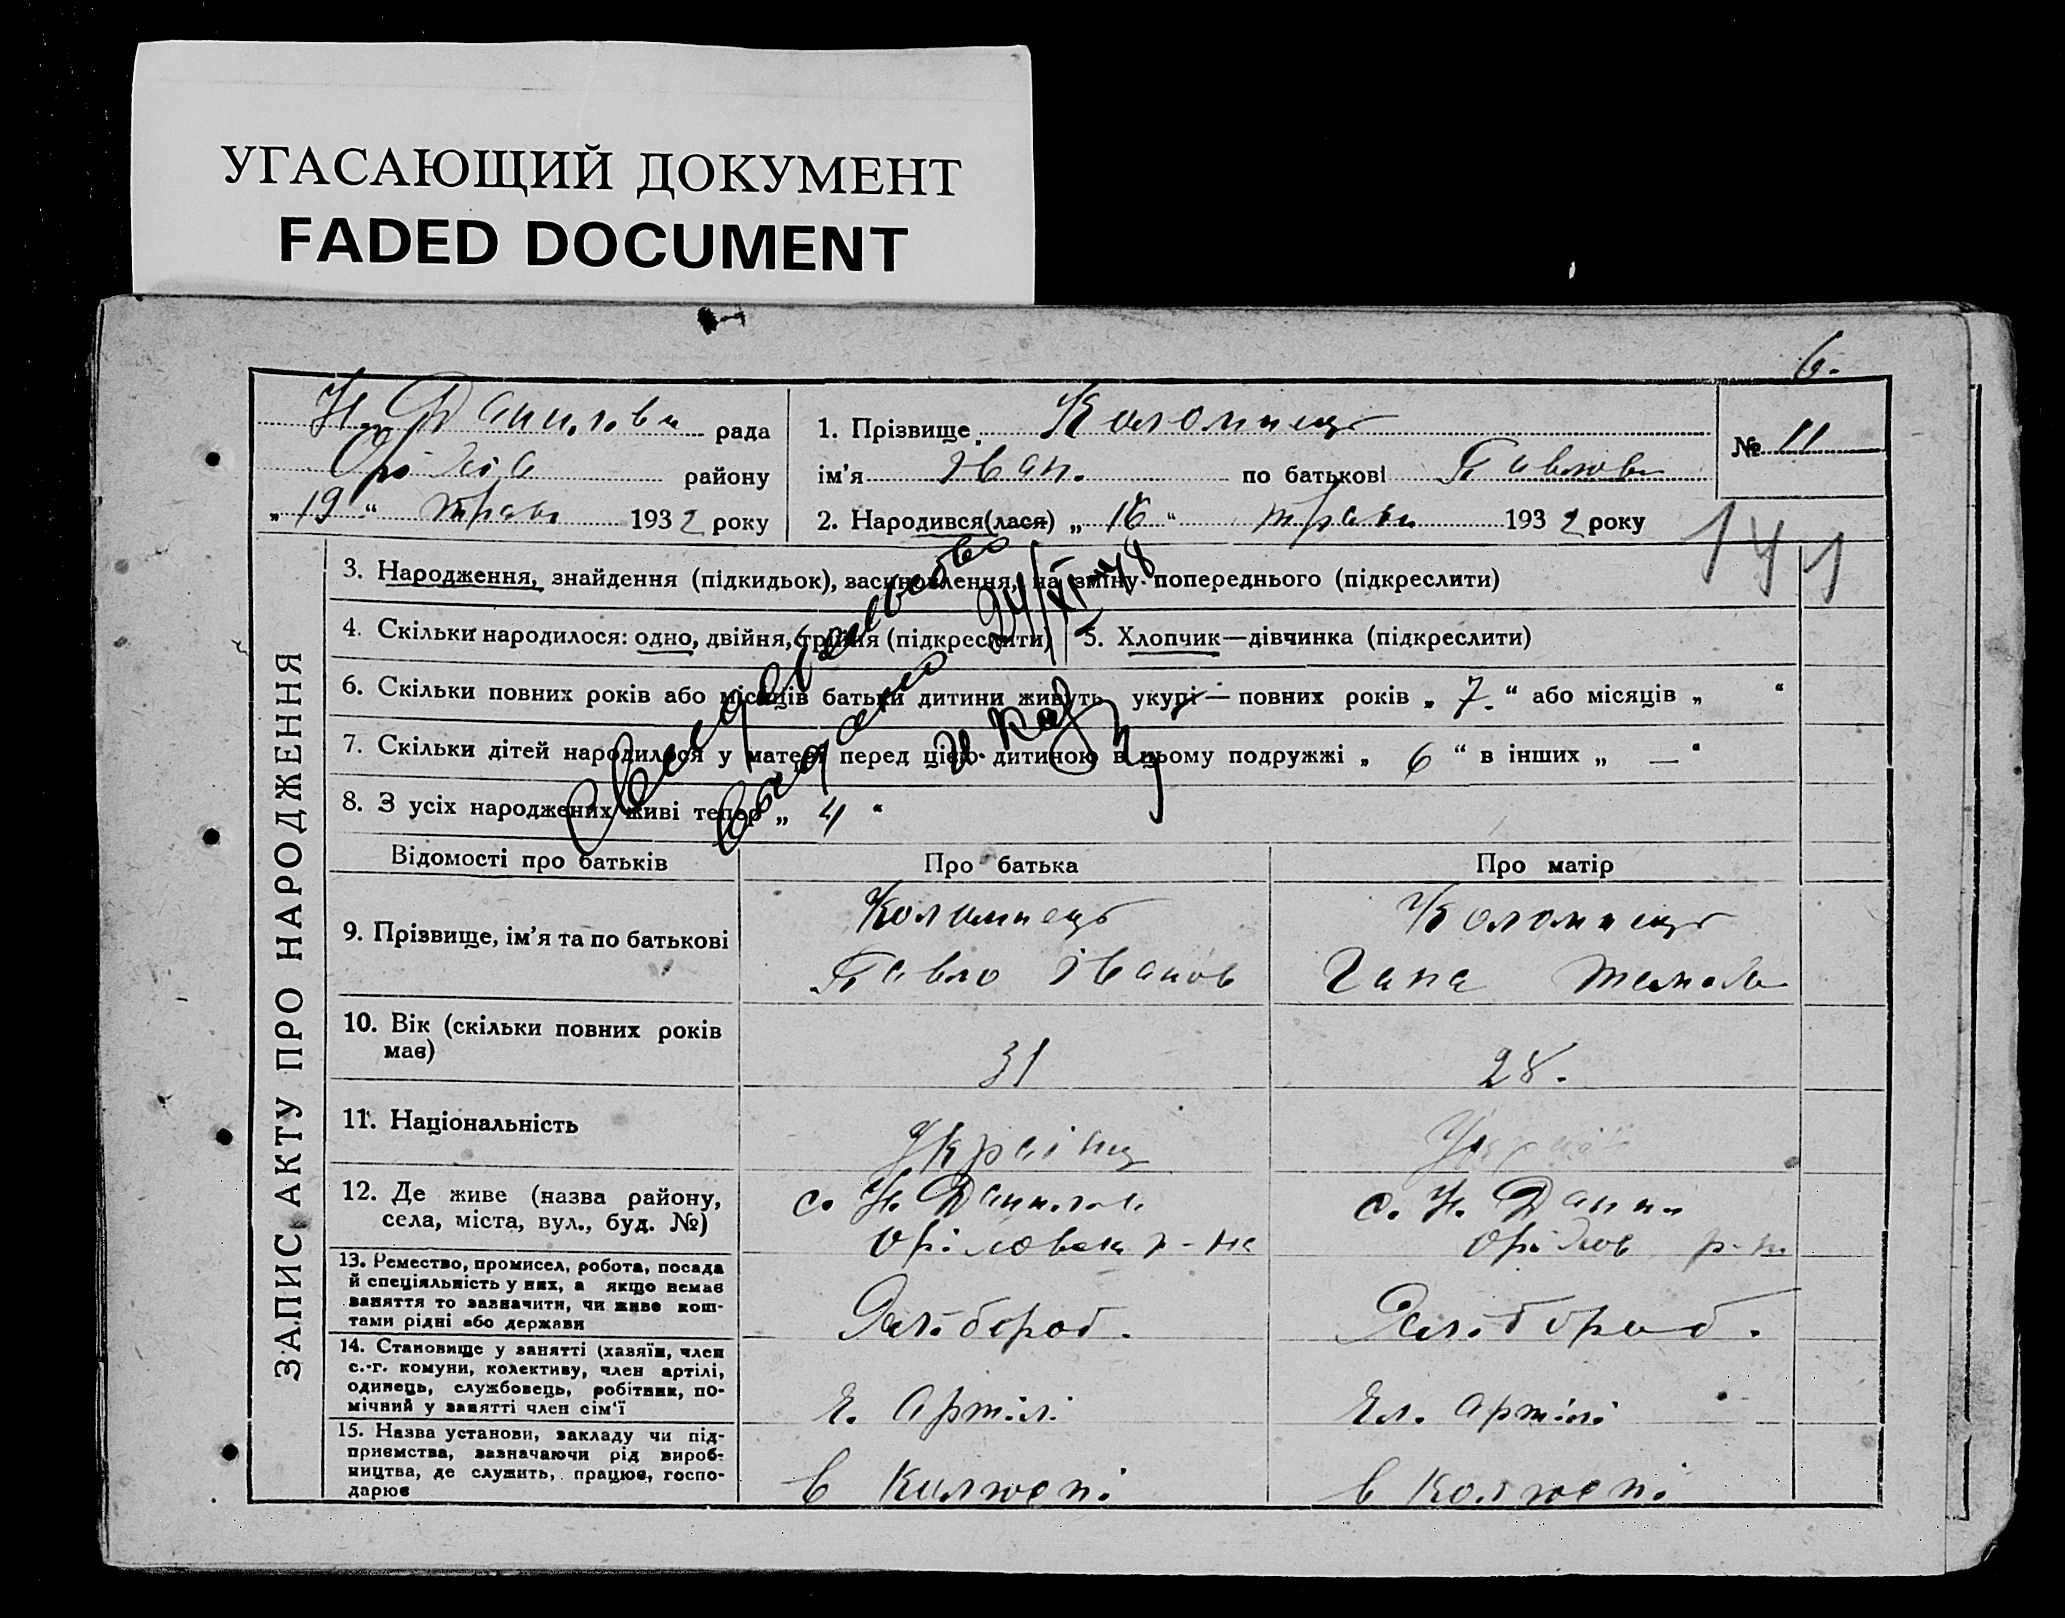 УГАСАЮЩИЙ ДОКУМЕНТ
FADED DOCUMENT
6.
Н. Данилівськ рада
району
„19“ трав 1932 року
1. Прізвище Коломиець
ім’я Іван. по батькові Павлов
2. Народився(лася) „16“ трав 1932 року
№ 11
141
ЗАПИС АКТУ ПРО НАРОДЖЕННЯ
3. Народження, знайдення (підкидьок), васиновлення, на зміну попереднього (підкреслити)
4. Скільки народилося: одно, двійня, трійня (підкреслити) 5. Хлопчик—дівчинка (підкреслити)
6. Скільки повних років або місяців батьки дитини живуть укупі — повних років „7.“ або місяців „ “
7. Скільки дітей народилося у матері перед цією дитиною в цьому подружжі „6“ в інших „—“
8. З усіх народжених живі тепер „4“
Свидетельство
выдано 24/XI-48
Відомості про батьків Про батька Про матір
9. Прізвище, ім’я та по батькові
Коломиець
Павло Іванов
Коломиець
Гана
10. Вік (скільки повних років має)
31 28.
11. Національність
Україн Україн
12. Де живе (назва району,
села, міста, вул., буд. №)
с. Н. Данилов
р-на
с. Н. Данил
р-н
13. Ремество, промисел, робота, посада
й спеціяльність у них, а якщо немає
заняття то зазначити, чи живе кош-
тами рідні або держави
14. Становище у занятті (хазяїн, член
с.-г. комуни, колективу, член артілі,
одинець, службовець, робітник, по-
мічний у занятті член сім’ї
Ч. Артілі Чл. артілі
15. Назва установи, закладу чи під-
приємства, зазначаючи рід вироб-
ництва, де служить, працює, госпо-
дарює
в Колгоспі в Колгоспі